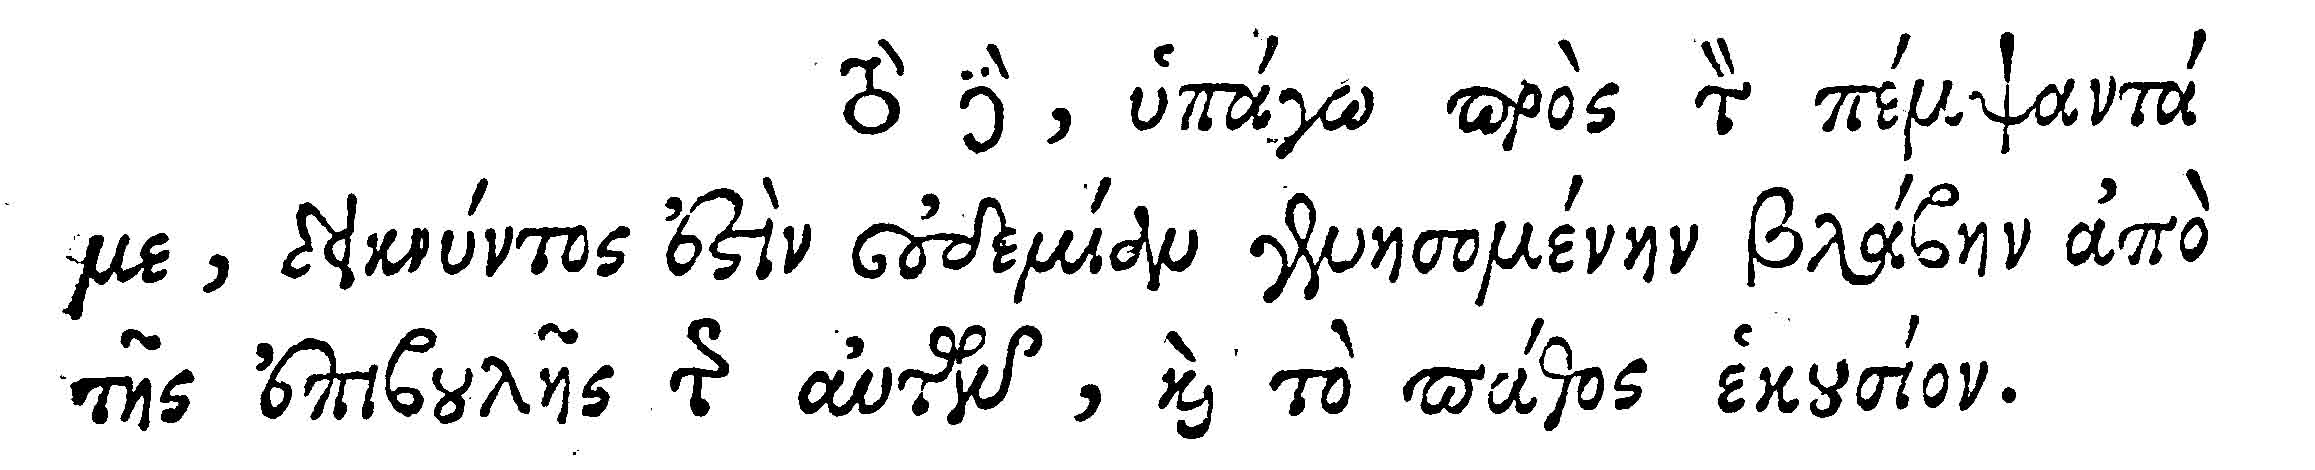 τὸ δὲ, ὑπάγω πρὸς τὸν πέμψαντά
με, δεικνύντος ἐστὶν οὐδεμίαν γενησομένην βλάβην ἀπὸ
τῆς ἐπιβουλῆς τῶν ἀυτῶν, καὶ τὸ πάθος ἑκουσίον.